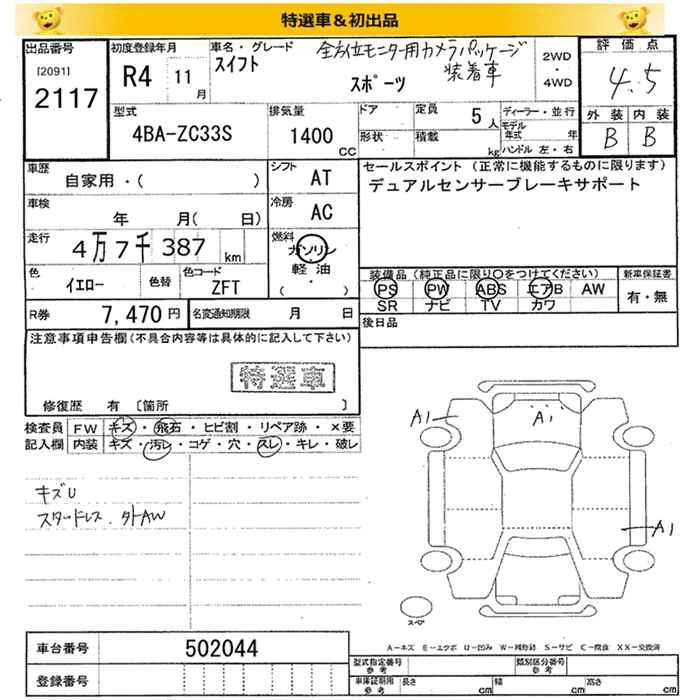 特選車＆初出品
出品番号
[2091]
2117
初度登録年月
R4 11月
車名・グレード
スイフト
全方位モニター用カメラパッケージ
装着車
スポーツ
2WD
・
4WD
評価点
4.5
外装 内装
B B
型式
4BA-ZC33S
排気量
1400
CC
ドア
形状
定員
5人
積載
kg
ディーラー・並行
モデル年式 年
ハンドル 左・右
車歴
自家用・( )
シフト
AT
セールスポイント (正常に機能するものに限ります)
デュアルセンサーブレーキサポート
車検
年 月( 日)
冷房
AC
走行
4万7千387km
燃料
ガソリン
軽油
・( )
色
イエロー
色替
色コード
ZFT
装備品(純正品に限り〇をつけてください)
PS PW ABS エアB AW
SR ナビ TV カワ
新車保証書
有・無
R券
7,470円
名変通知期限 月 日
後日品
注意事項申告欄(不具合内容等は具体的に記入して下さい)
特選車
修復歴 有 〔箇所 〕
検査員
記入欄
FW キズ・飛石・ヒビ割・リペア跡・×要
内装 キズ・汚レ・コゲ・穴・スレ・キレ・破レ
キズU
スタッドレス. 外AW
A1
A1
A1
スペア
A－キズ E－エクボ U－凹み W－補修跡 S－サビ C－腐食 XX－交換済
車台番号
502044
登録番号
型式指定番号
参考
類別区分番号
参考
車庫証明用
参考
長さ cm 幅 cm 高さ cm